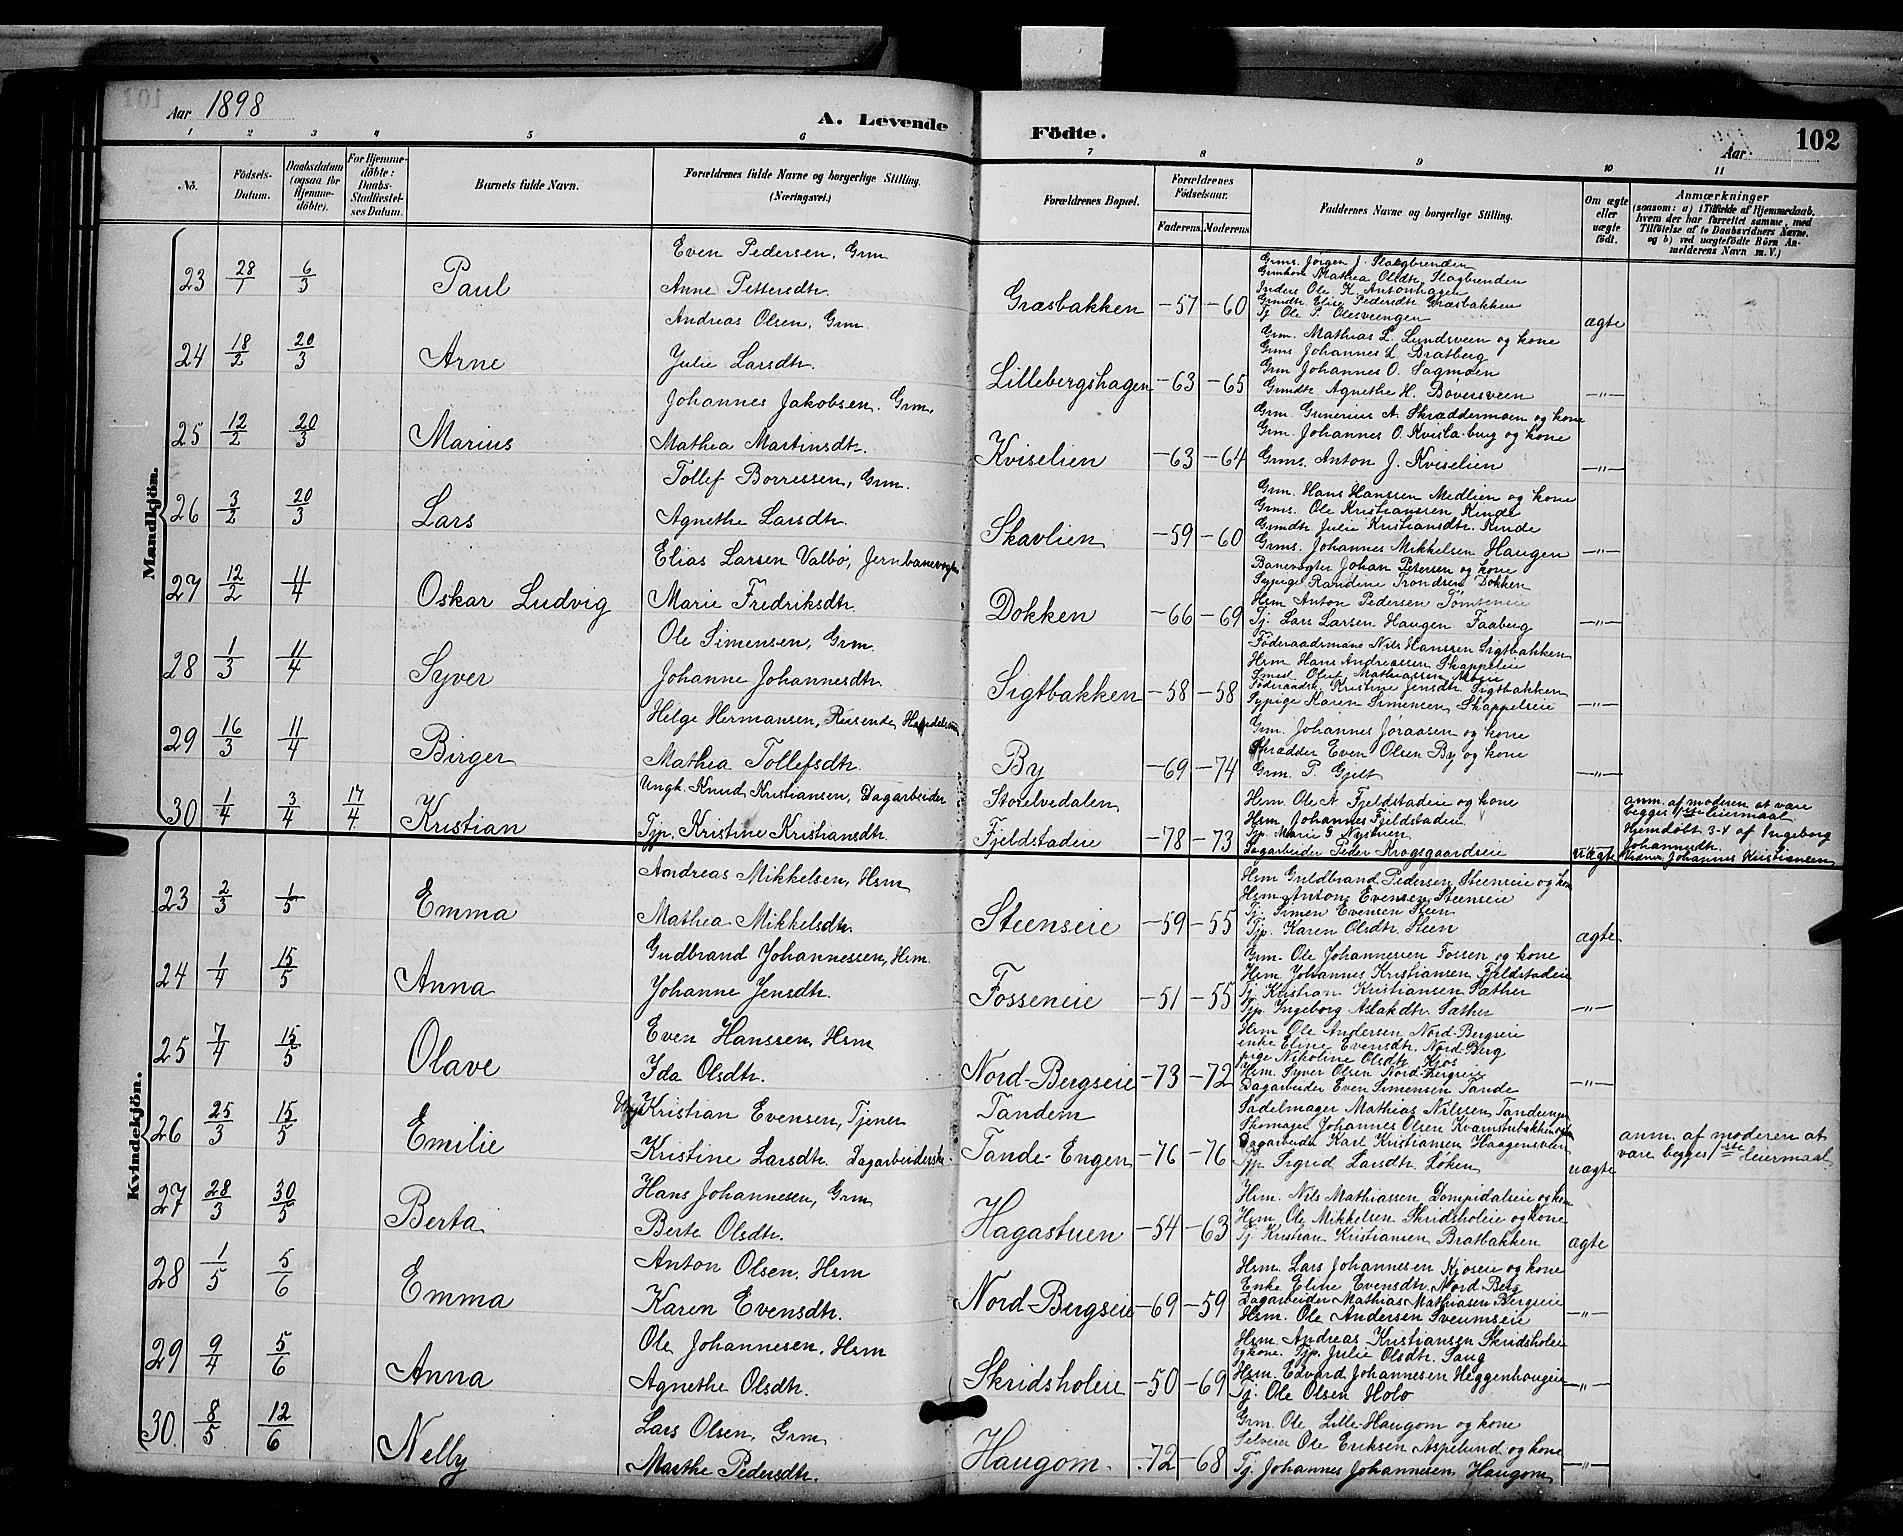 Aar 1898
A. Levende
Födte.
Aar
102
1 2 3 4 5 6 7 8 9 10 11
No.
Födsels-Datum.
Daabsdatum (ogsaa for Hjemme-döbte).
For Hjemme-döbte: Daabs-Stadfæstel-ses Datum.
Barnets fulde Navn.
Forældrenes fulde Navne og borgerlige Stilling. (Næringsvei.)
Forældrenes Bopæl.
Forældrenes Födselsaar.
Faderens. Moderens.
Faddernes Navne og borgerlige Stilling.
Om ægte eller uægte födt.
Anmærkninger (saasom: a) i Tilfælde af Hjemmedaab, hvem der har forrettet samme, med Tilföielse af to Daabsvidners Navne, og b) ved uægtefödte Börn An-melderens Navn m. V.)
Mandkjön.
Even Pedersen, Grm
23 28/1 6/3 Paul Anne Pettersdtr. Græsbakken -57 -60 ægte
Grms. Jörgen J. Slagbrenden
Grmkone Mathea Olsdtr. Slagbrenden
Inders Ole K. Antonhagen
Grmdtr. Elise Pedersdtr. Græsbakken
Tj. Ole P. Olesveengen
Andreas Olsen, Grm.
24 18/2 20/3 Arne Julie Larsdtr. Lillebergshagen -63 -65 -"-
Grm. Mathias L. Lundsveen og kone
Grms Johannes L. Bratberg
Grm Johannes O. Sagmoen
Grmdtr Agnethe H. Bøversveen
Johannes Jakobsen. Grm.
25 12/2 20/3 Marius Mathea Martinsdtr. Kviselien -63 -64 -"-
Grm. Gunerius A. Skræddermoen og kone
Grm. Johannes O. Kvislaberg og kone
Grms. Anton J. Kviselien
Tollef Borressen, Grm.
26 3/2 20/3 Lars Agnethe Larsdtr. Skavlien -59 -60 -"-
Grm. Hans Hanssen Medlien og kone
Grms. Ole Kristianssen Rinde
Grmdtr Julie Kristiansdtr. Rinde
Grms. Johannes Mikkelsen Haugen
Elias Larsen Valbø, Jernbanevogter
27 12/2 11/4 Oskar Ludvig Marie Fredriksdtr. Dokken -66 -69 -"-
Banevogter Johan Petersen og kone
Sypige Randine Trondsen Dokken
Hsm Anton Pedersen Tömteneie
Tj. Lars Larsen Haugen Faaberg
Ole Simensen, Grm.
28 1/3 11/4 Syver Johanne Johannesdtr. Sigtbakken -58 -58 -"-
Föderaadsmans Nils Hanssen Sigtbakken
Hsm Hans Andreassen Skappeleie
Smed Oluf Mathiassen Moeie
Föderaadsk. Kristine Jensdtr. Sigtbakken
Sypige Karen Simensen Skappelseie
Helge Hermansen, Reisende Handelsm
29 16/3 11/4 Birger Mathea Tollefsdtr. By -69 -74 -"-
Grm. Johannes Joraasen og kone
Skrædder Even Olsen By og kone
Grm. P. Gjelt
Ungk. Knud Kristiansen, Dagarbeider Storelvedalen
30 1/4 3/4 17/4 Kristian Tjp. Kristine Kristiansdtr. Fjeldstadeie -78 -73 uægte
Hsm. Ole A. Fjeldstadeie og kone
Hsm. Johannes Fjeldstadeie
Tjp. Marie G. Nystuen
Dagarbeider Peder Krogsgaardseie
anm. af moderen at være
begges 1ste leiermaal
Hjemdöbt 3-4 af Ingeborg
Johannesdtr.
Vidner Johannes Kristiansen
Kvindekjön.
Andreas Mikkelsen, Hsm
23 2/3 1/5 Emma Mathea Mikkelsdtr. Steenseie -59 -55 ægte
Hsm Guldbrand Pedersen Steenseie og kone
Hsm Anton Evensen Steenseie
Tj. Simen Evensen Steen
Tjp. Karen Olsdtr. Steen
Gudbrand Johannessen, Hsm.
24 1/4 15/5 Anna Johanne Jensdtr. Fosseneie -51 -55 -"-
Grm. Ole Johannessen Fossen og kone
Hsm Johannes Kristiansen Fjeldstadeie
Tj. Kristian Kristiansen Sæther
Tjp. Ingeborg Aslakdtr. Sæther
Even Hanssen, Hsm
25 7/4 15/5 Olave Ida Olsdtr. Nord-Bergseie -73 -72 -"-
Hsm Ole Andersen Nord-Bergseie
enke Eline Evensdtr. Nord-Berg
pige Nikoline Olsdtr. Kjos
Hsm. Syver Olsen Nord-Bergseie
Dagarbeider Even Simensen Tande
Ungk. Kristian Evensen, Tjener Tandem
26 25/3 15/5 Emilie Kristine Larsdtr. Dagarbeiderske. Tande-Engen -76 -76 uægte
Sadelmager Mathias Nilssen Tandeengen
Skomager Johannes Olsen Kvarnstubakken
Dagarbeider Karl Kristiansen Haagensveen
Tjp. Sigrid Larsdtr. Løken
anm. af moderen at
være begges 1ste leiermaal
Hans Johannesen, Grm
27 28/3 30/5 Berta Berte Olsdtr. Hagastuen -54 -63 ægte
Hsm. Nils Mathiassen Dompidaleie og kone
Hsm. Ole Mikkelsen Skridsholeie og kone
Tj. Kristian Kristiansen Bratbakken
Anton Olsen. Hsm
28 1/5 5/6 Emma Karen Evensdtr. Nord Bergseie -69 -59 -"-
Hsm. Lars Johannesen Kjoseie og kone
Enke Eline Evensdtr. Nord Berg
Dagarbeider Mathias Mathiasen Bergseie
Hsm. Ole Andersen Sveumseie
Ole Johannesen, Hsm
29 9/4 5/6 Anna Agnethe Olsdtr. Skridsholeie -50 -69 -"-
Hsm. Andreas Kristiansen Skridsholeie
og kone. Tjp. Julie Olsdtr. Saug
Hsm. Edvard Johannesen Heggenhaugeie
Tj. Ole Olsen Holo
Lars Olsen, Grm
30. 8/5 12/6 Nelly Marthe Pedersdtr. Haugom. -72 -68 -"-
Grm. Ole Lille-Haugom og kone
Selveier Ole Eriksen Aspelund og kone
Tj. Johannes Johannesen Haugom